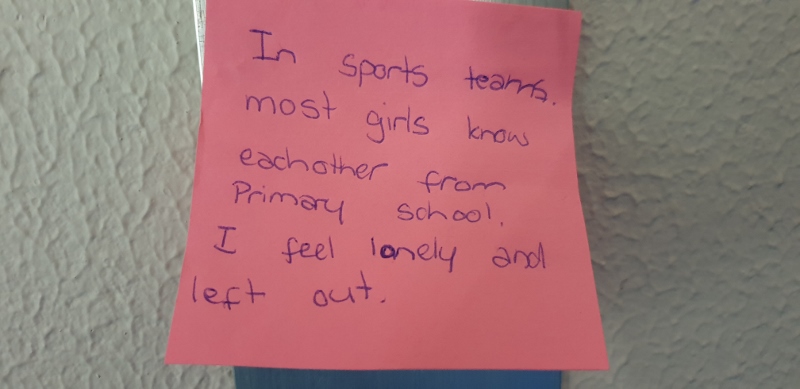 In sports teams.
most girls know
eachother from
Primary school.
I feel lonely and
left out.